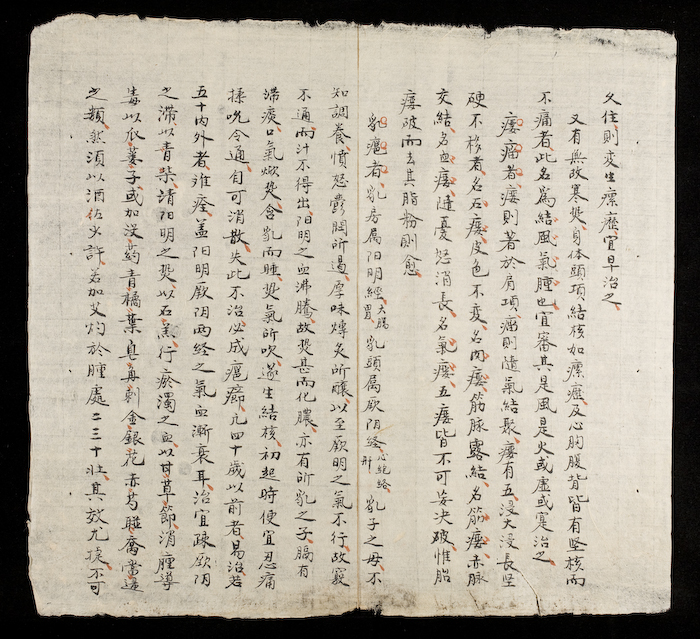 久住則变生瘰癧宜早治之
又有無故寒熱身体頭項結核如瘰癧及心胸腹背皆有坚核而
不痛者此名爲結風氣腫也宜審其是風是火或虛或寔治之
瘿瘤者瘿則著於肩項瘤則隨氣結聚瘿有五浸大浸長坚
硬不移者名石瘿皮色不变名肉瘿筋脉露結名筋瘿赤脉
交結名血瘿隨憂怒消長名氣瘿五瘿皆不可妄决破惟脂
瘿破而去其脂粉則愈
乳癰者乳房屬阳明經大腸胃乳頭屬厥阴経心包絡肝乳子之母不
知調養憤怒鬱悶所遏厚味煿炙所釀以至厥明之氣不行故竅
不通而汁不得出阳明之血沸騰故熱甚而化膿亦有所乳之子膈有
滯痰口氣焮熱含乳而睡熱氣所吹遂生結核初起時便宜忍痛
揉吮令通自可消散失此不治必成癰癤凢四十歲以前者易治若
五十内外者难痊盖阳明厥阴两经之氣血漸衰耳治宜疎厥阴
之滯以青柴清阳明之熱以石羔行瘀濁之血以甘草節消腫導
毒以瓜蒌子或加没药青橘葉皂角刺金銀花赤芍臙
之類然須以酒佐少許若加艾灼於腫處二三十壮其效尤捷不可